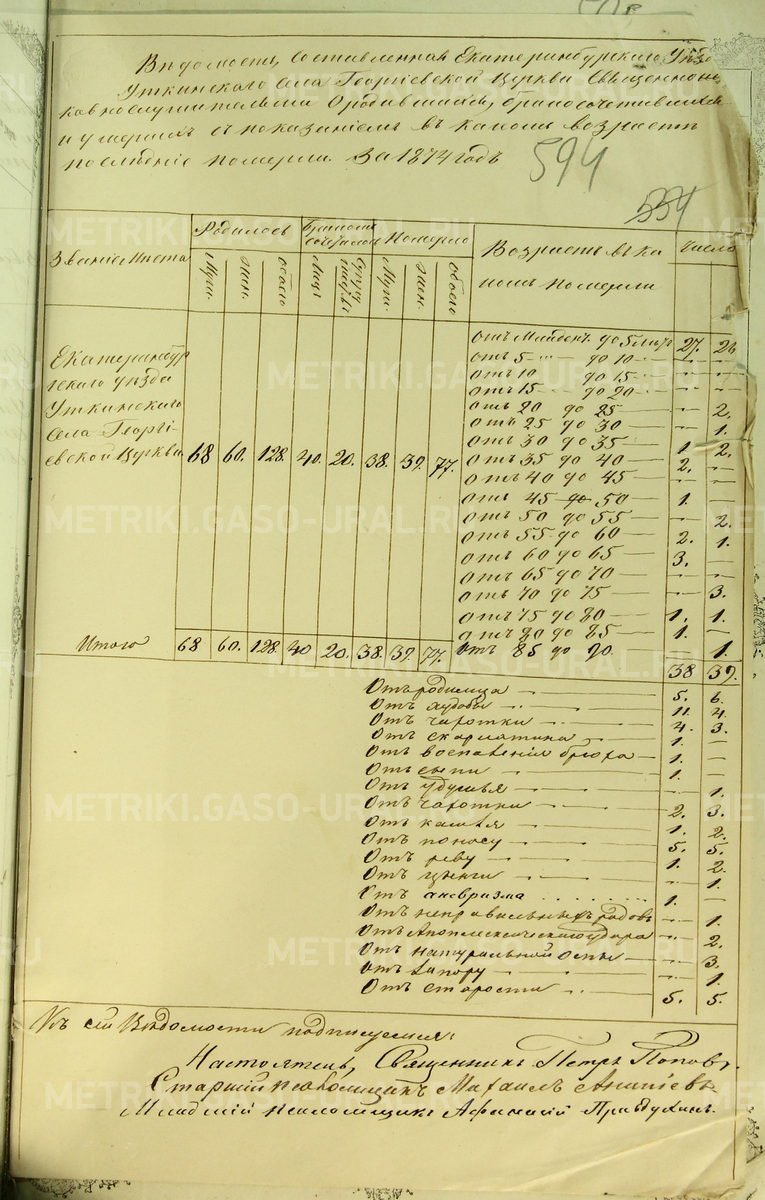 Вѣдомость, составленная Екатеринбургскаго Уѣзда
Уткинскаго села Георгіевской Церкви Священноцер
ковнослужителями О родившихся, бракосочетавшихся
и умершихъ съ показаніемъ въ какомъ возрастѣ
послѣдніе померли. За 1874 годъ
594
554
Званіе Мѣста
Родилось
Бракомъ сочеталось
Померло
Возрастъ въ ка
комъ померли
Число
Муж.
Жен.
обоего
Лицъ
Супружествъ
Муж.
Жен.
обоего
Екатеринбур
гскаго уѣзда
Уткинскаго
Села Георгі
евской Церкви 68 60. 128. 40. 20. 38. 39. 77.
отъ Младен. до 5 лѣтъ 27. 26
отъ 5 — до 10 — — —
отъ 10 до 15 — — —
отъ 15 — до 20 — — —
отъ 20 до 25 — — 2.
отъ 25 до 30 — — 1.
отъ 30 до 35 — 1. 2.
отъ 35 до 40 — 2. —
отъ 40 до 45 — — —
отъ 45 до 50 — 1. —
отъ 50 до 55 — — 2.
отъ 55 до 60 — 2. 1.
отъ 60 до 65 — 3. —
отъ 65 до 70 — — —
отъ 70 до 75 — — 3.
отъ 75 до 80 — 1. 1.
отъ 80 до 85 — 1. —
отъ 85 до 90. — 1.
Итого 68 60. 128. 40 20. 38. 39. 77.
38 39.
Отъ родимца — 5. 6.
Отъ худобы — 11. 4.
Отъ чахотки — 4. 3.
Отъ скарлатина — 1. —
Отъ воспаленія брюха — 1. —
Отъ сыпи — 1. —
Отъ удушья — — 1.
Отъ чахотки — 2. 3.
Отъ кашля — 1. 2.
Отъ поносу — 5. 5.
Отъ реву — 1. 2.
Отъ цынги — — 1.
Отъ аневризма . . . . . . . . 1. —
Отъ неправильныхъ родовъ — 1.
Отъ Апоплексическаго удара — 2.
Отъ натуральной оспы — — 3.
отъ запору — — 1.
Отъ старости — 5. 5.
Къ сей Вѣдомости подписуемся:
Настоятель, Священникъ Петръ Поповъ.
Старшій псаломщикъ Михаилъ Ананіевъ
Младшій псаломщикъ Афанасій Правдухинъ.
METRIKI.GASO-URAL.RU